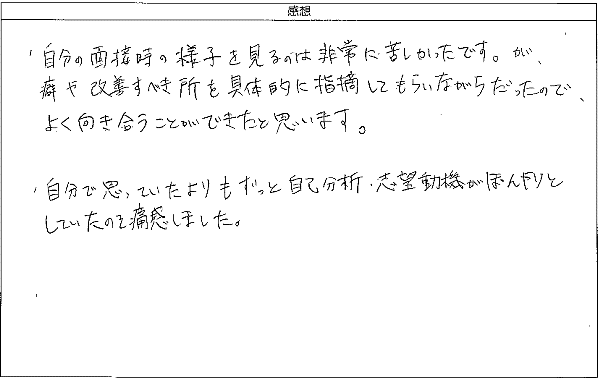 感想
・自分の面接時の様子を見るのは非常に苦しかったです。が、
癖や改善すべき所を具体的に指摘してもらいながらだったので、
よく向き合うことができたと思います。
・自分で思っていたよりもずっと自己分析・志望動機がぼんやりと
していたのを痛感しました。